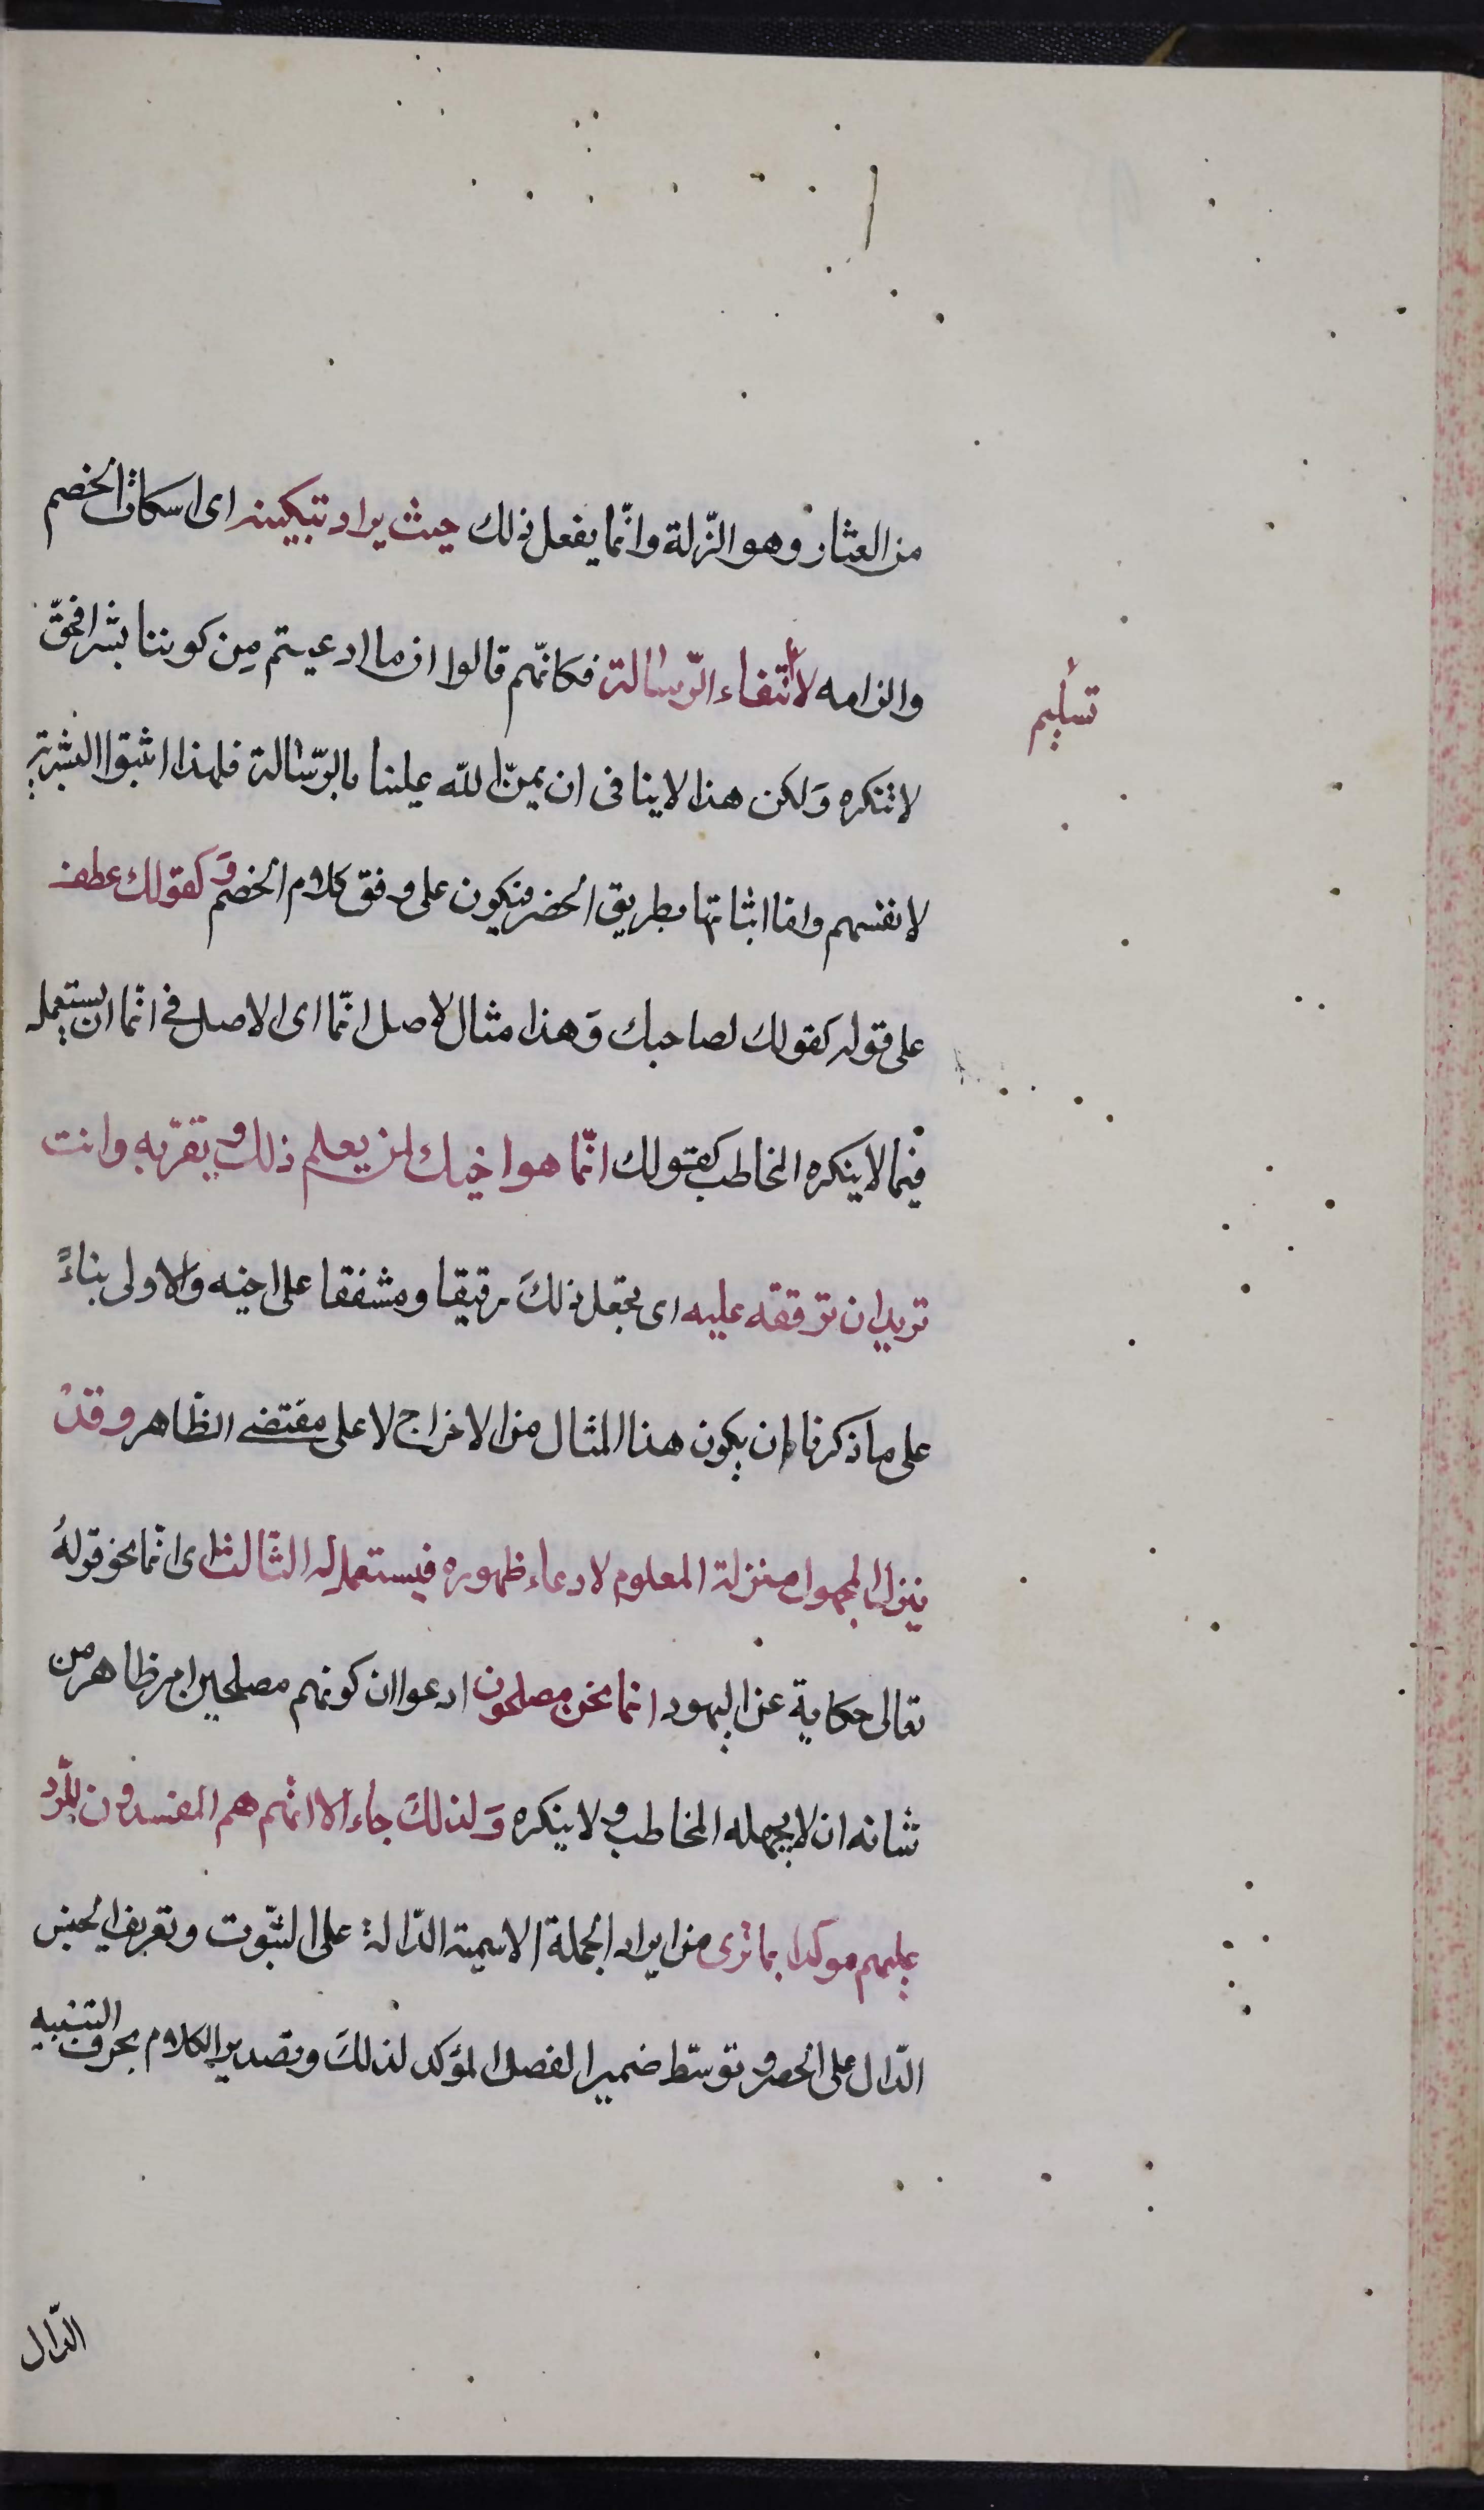 من العثار وهو الزّلة وانّما يفعل ذلك حيث يراد تبكيته اى اسكات الخصم
والزامه لا لانتفاء الرّسالة فكانّهم قالوا ان ما ادعيتم مِن كوننا بشرا فحقّ
تسليم
لا ننكره وَلكن هذا لا ينافى ان يمنّ الله علينا بالرّسالة فلهذا اثبتوا البشرية
لانفسهم واما اثباتها بطريق الحصر فيكون على وفق كلام الخصم وَ كقولك عطف
على قوله كقولك لصاحبك وَهذا مثال لاصل انّما اى الاصل فى انّما ان يستعمل
فيما لا ينكره المخاطب كقولك انّما هو اخيك لمن يعلم ذلك ويقرّ به وانت
تريد ان ترققه عليه اى تجعل ذلكَ رقيقا ومشفقا على اخيه والاولى بناءً
على ما ذكرنا ان يكون هذا المثال من الاخراج لا على مقتضى الظّاهر وقد
ينزل المجهول منزلة المعلوم لادعاء ظهوره فيستعمل له الثّالث اى انّما نحو قولهُ
تعالى حكاية عن اليهود انما نحن مصلحون ادعوا ان كونهم مصلحين امر ظاهر من
شانه ان لا يجهله المخاطب ولا ينكره وَلذلكَ جاء الا انّهم هم المفسدون للرّد
عليهم موكدا بما ترى من ايراد الجملة الاسمية الدّالة على الثّبوت وتعريف الجنس
الدّال على الحصر وتوسّط ضمير الفصل المؤكد لذلكَ وتصدير الكلام بحرف التنبيه
الدّال